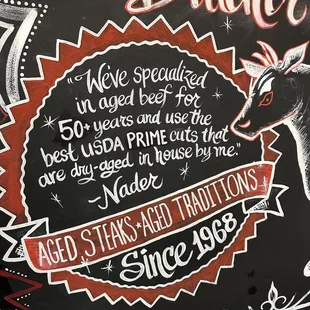 Butcher
7
"We've specialized
in aged beef for
50+ years and use the
best USDA PRIME cuts that
are dry-aged in house by me."
-Nader
AGED STEAKS★AGED TRADITIONS
Since 1968